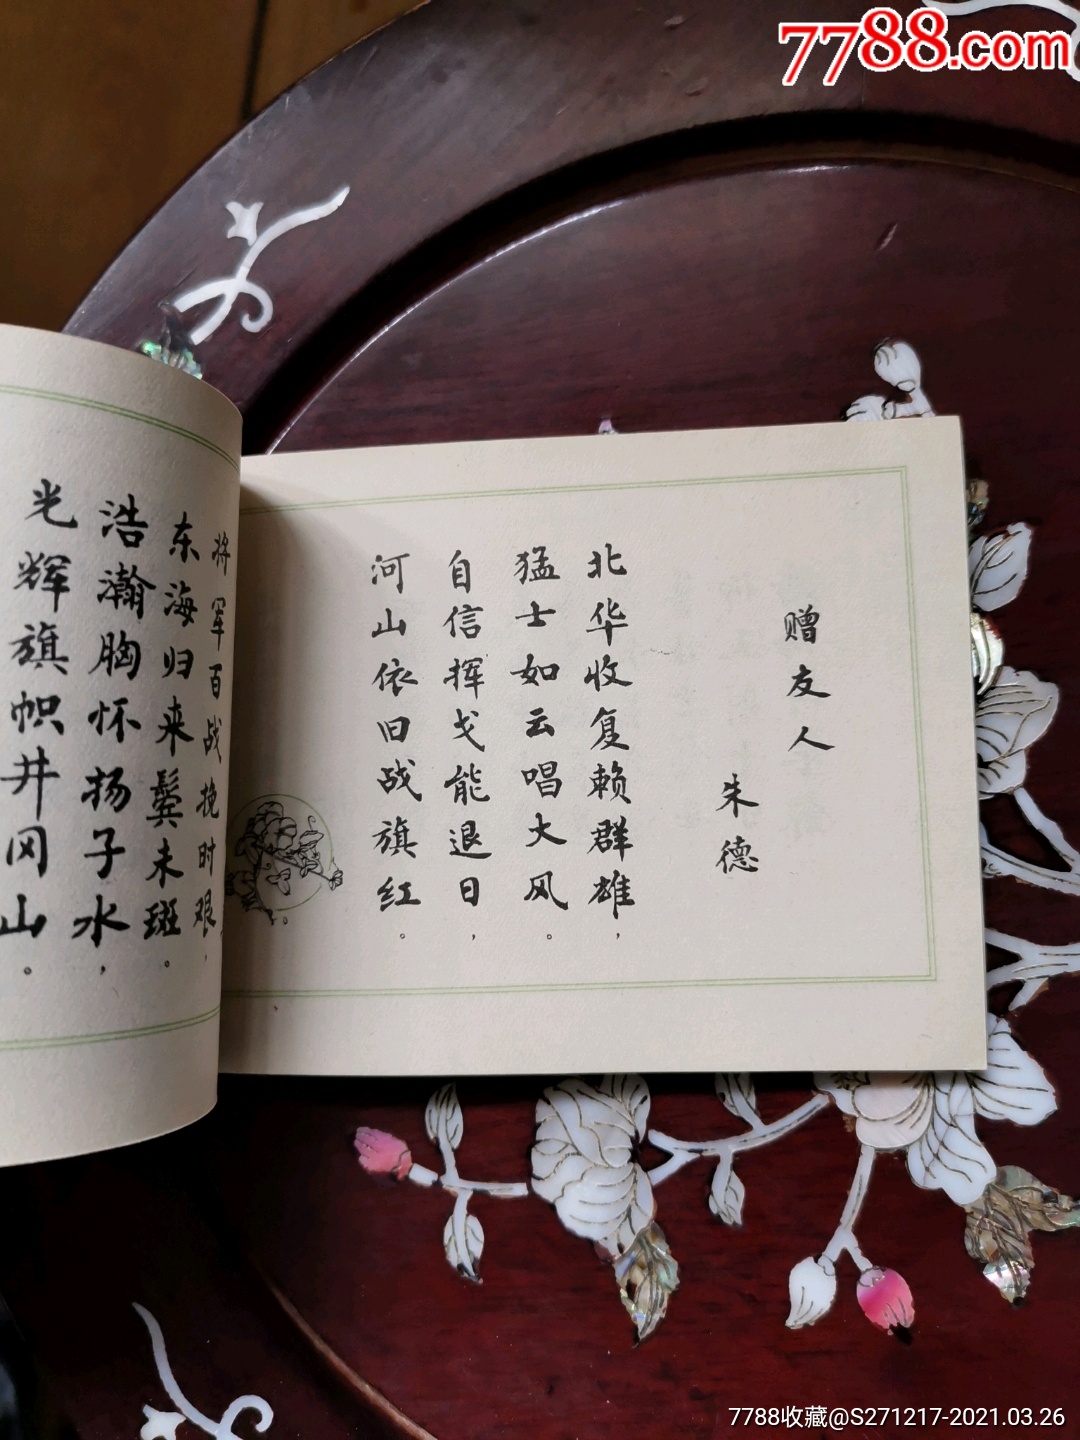 7788.com
赠友人
朱德
北华收复赖群雄，
猛士如云唱大风。
自信挥戈能退日，
河山依旧战旗红。
将军百战挽时艰，
东海归来鬓未斑。
浩瀚胸怀扬子水，
光辉旗帜井冈山。
7788收藏@S271217-2021.03.26